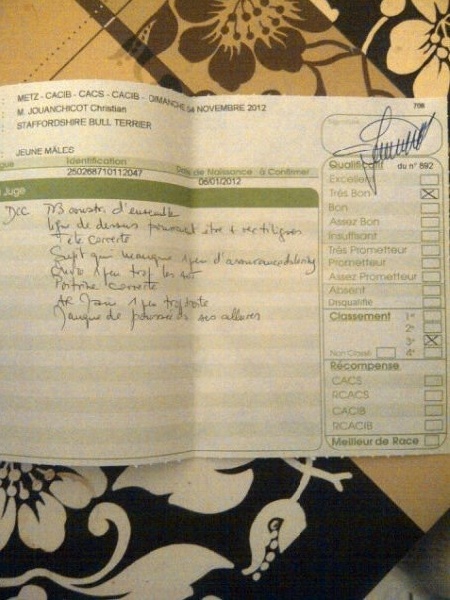 METZ - CACIB - CACS - CACIB - DIMANCHE 04 NOVEMBRE 2012
M. JOUANCHICOT Christian
708
STAFFORDSHIRE BULL TERRIER
JEUNE MÂLES
Identification
Date de Naissance à Confirmer
250268710112047
05/01/2012
Juge
TB constr. d'ensemble
ligne de dessus pourrait être + rectiligne
Tête correcte
Sujet qui manque 1 peu d'assurance
1 peu trop
Poitrine correcte
AR 1 peu trop
Manque de ses allures
Qualificatif du n° 892
Excellent
Très Bon
Bon
Assez Bon
Insuffisant
Très Prometteur
Prometteur
Assez Prometteur
Absent
Disqualifié
Classement 1er
2e
3e
Non Classé 4e
Récompense
CACS
RCACS
CACIB
RCACIB
Meilleur de Race